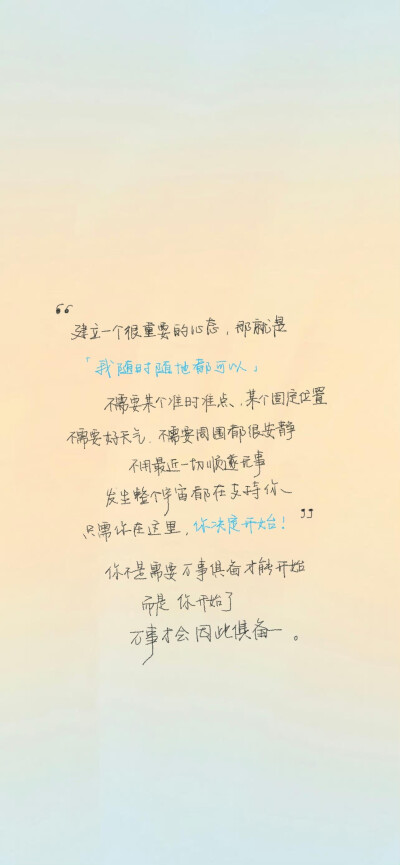 “建立一个很重要的心态，那就是
「我随时随地都可以」
不需要某个准时准点、某个固定位置
不需要好天气、不需要周围都很安静
不用最近一切顺遂无事
发生整个宇宙都在支持你
只需你在这里，你决定开始！”
你不是需要万事俱备才能开始
而是 你开始了
万事才会因此俱备。